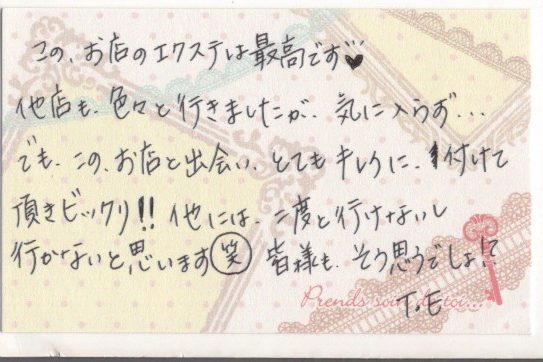 この、お店のエクステは最高です♥
他店も、色々と行きましたが、気に入らず...
でも、この、お店と出会い、とてもキレイに、付けて
頂きビックリ!! 他には、二度と行けないし
行かないと思います㊗笑 皆様も、そう思うでしょ!?
Prends soin de toi...
T.E